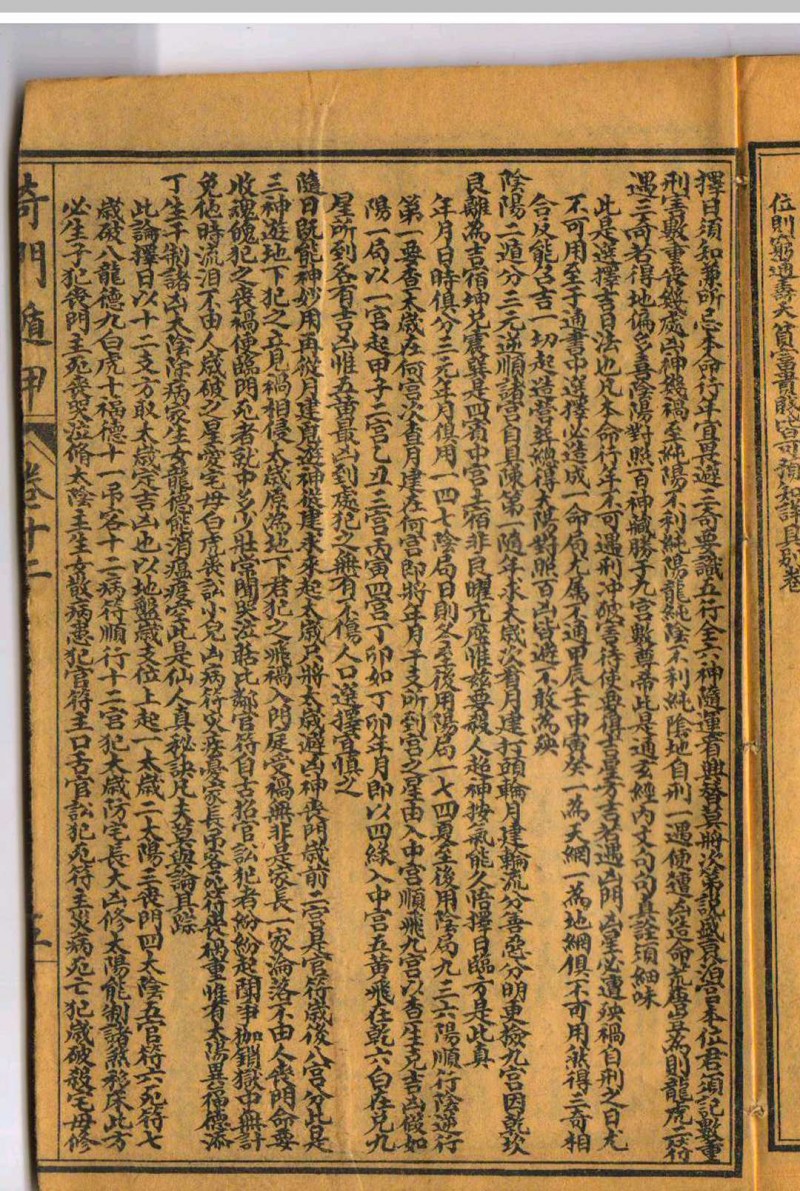 位則窮通壽夭貧富貴賤皆可預知詳具別卷
擇日須知兼所忌本命行年宜畏避三奇要識五行全六神隨運看興替莫將次第說盛衰泊宮本位君須記數重
刑害數重喪錢處凶神幾禍至純陽不利純陽龍純陰不利純陰地自刑一遇便遭凶造命荒唐豈若則龍虎二符
遇三奇若得地偏多喜陰陽對照百神藏勝于九宮數尊帝此是通玄經內文句句真詮須細味
此是選擇吉日法也凡本命行年不可遇刑冲破害待使要得吉星方吉若遇凶門凶星必遭殃禍自刑之日尤
不可用至于通書中選擇必造成一命局尤属不通甲辰壬申寅癸一為天網一為地網俱不可用然得三奇相
合反能召吉一切起造營葬總得太陽對照百凶皆避不敢為殃
陰陽二遁分三元逆順諸宮自具陳第一隨年求太歲次看月建打頭輪月建輪流分善惡分明更撿九宮因乾坎
艮離為吉宿坤兌震巽是四賓中宮土宿非良曜亢庶惟兹要殺人超神接氣能久悟擇日臨方是此真
年月日時俱分三元年月俱用一四七陰局日則冬至後用陽局一七四夏至後用陰局九三六陽順行陰逆行
第一要查太歲在何宮次查月建在何宮即將年月干支所到宮之星由入中宮順飛九宮以查生克吉凶假如
陽一局以一宮起甲子二宮乙丑三宮丙寅四宮丁卯如丁卯年月即以四綠入中宮五黃飛在乾六白在兌九
星所到各有吉凶惟五黃最凶到處犯之無有不傷人口選擇宜慎之
隨日既能神妙用再從月建覓遊神從建求來起太歲只將太歲避凶神喪門歲前二宮是官符歲後八宮分此是
三神遊地下犯之立見禍相侵太歲原為地下君犯之飛禍入門庭受禍無非是家長一家淪落不由人喪門命要
收魂魄犯之喪禍便臨門死者就中多少壯常聞哭泣聒比鄰官符自古招官訟犯者紛紛起鬪爭枷鎖獄中無計
免他時流泪不由人歲破之星愛宅母白虎喪訟小兒凶病符灾疾憂家長吊客死符喪禍重惟有太陽異福德添
丁生子制諸凶太陰除病家生女龍德能消瘟疫空此是仙人真秘訣凡夫莫與論其踪
此論擇日以十二支方取太歲定吉凶也以地盤歲支位上起一太歲二太陽三喪門四太陰五官符六死符七
歲破八龍德九白虎十福德十一吊客十二病符順行十二宮犯太歲防宅長大凶修太陽能制諸煞移床此方
必生子犯喪門主死喪哭泣修太陰主生女散病患犯官符主口舌官訟犯死符主災病死亡犯歲破殺宅母修
奇門遁甲
卷十二